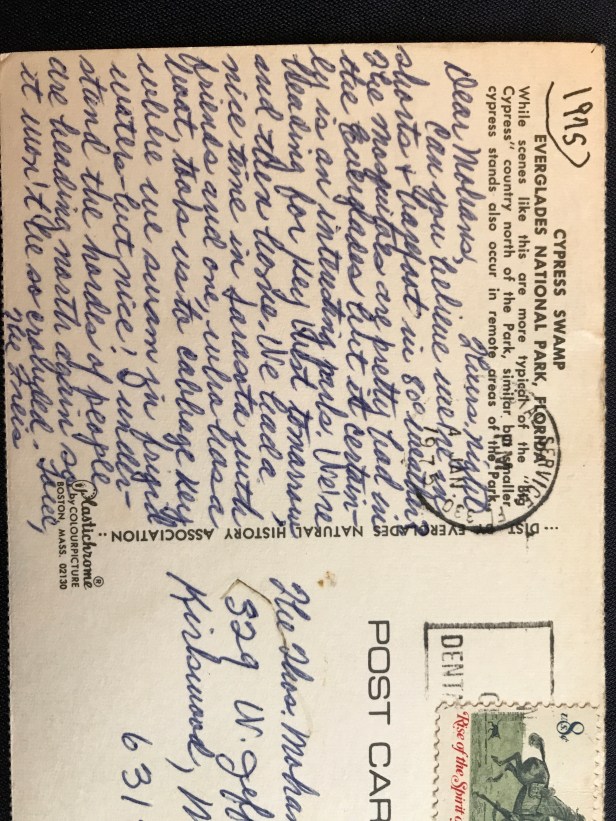 1975
CYPRESS SWAMP
EVERGLADES NATIONAL PARK, FLORIDA
While scenes like this are more typical of the "Big
Cypress" country north of the Park, similar but smaller
cypress stands also occur in remote areas of the Park.
Thurs. night
Dear Mohans,
Can you believe me in
shorts & barefoot in 80° weather,
The mosquitoes are pretty bad in
the Everglades but it certain-
ly is an interesting park. We're
heading for Key West tomorrow
and then home. We had a
nice time in Sarasota with
friends and one, who has a
boat, took us to Cabbage Key
where we swam in frigid
waters - but nice! I under-
stand the hordes of people
are heading north again so
it won't be so crowded.
The Freis
DIST. BY EVERGLADES NATURAL HISTORY ASSOCIATION
Plastichrome®
by COLOURPICTURE
BOSTON, MASS. 02130
SERVICE
JAN
1975
330
POST CAR
DENTA
8c
U.S.
Rise of the Spirit
The Thos. Mohan
329 W. Jeff
Kirkwood, M
631